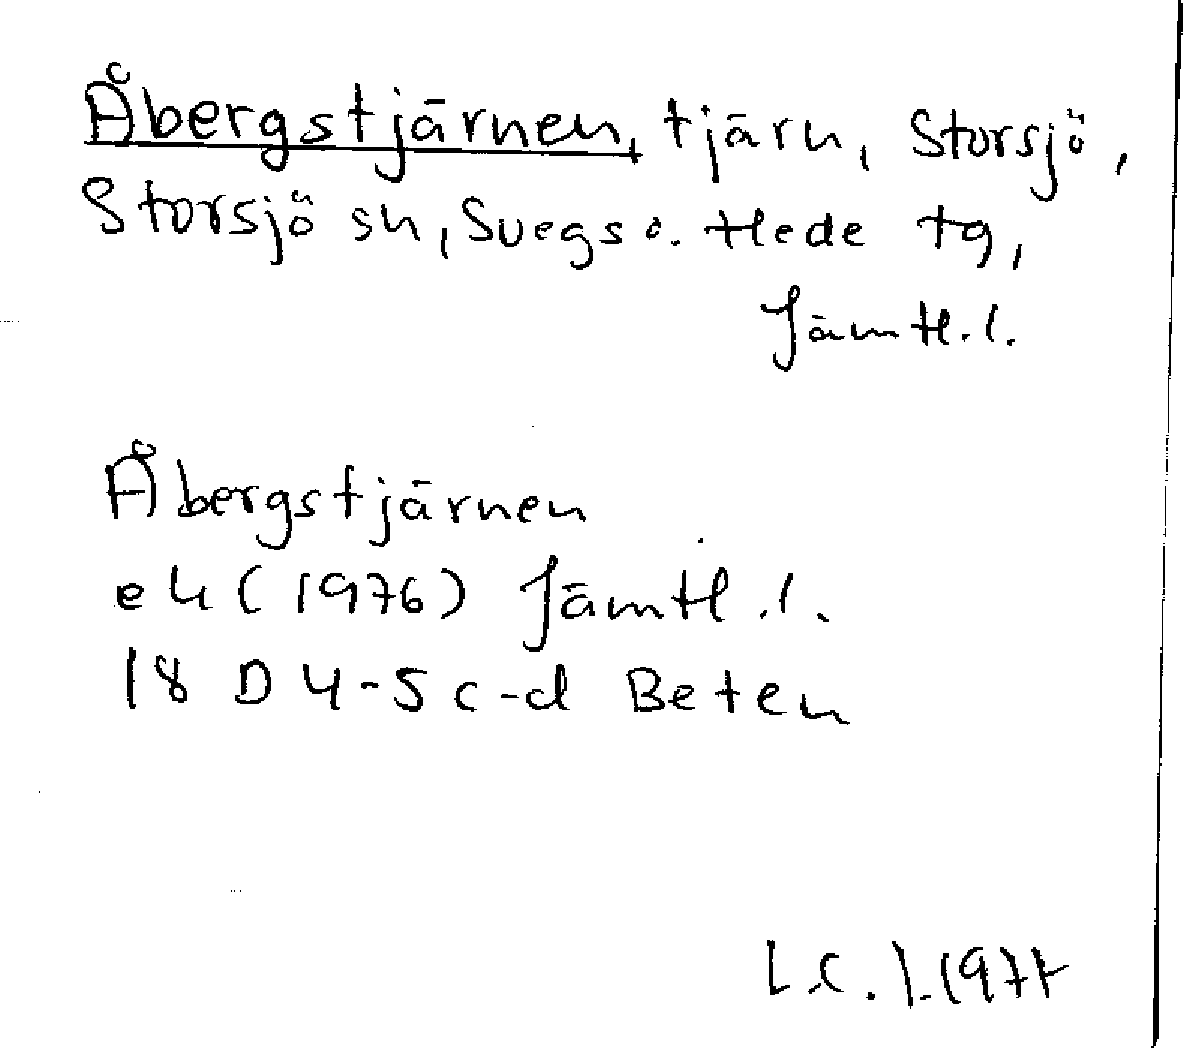 Åbergstjärnen, tjärn, Storsjö,
Storsjö sn, Svegs o. Hede tg,
Jämtl.l.
Åbergstjärnen
ek (1976) Jämtl.l.
18 D 4-5 c-d Beten
L.C. 1.1977